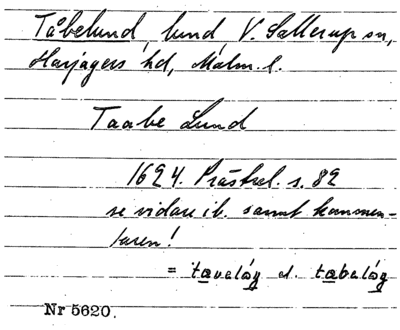 Tåbelund, lund V. Sallerup sn,
Harjagers hd, Malm. l.
Taabe Lund
1624. Prästrel. s. 82
se vidare ib. samt kommen-
taren!
= tavelåg el. tabalåg
Nr 5620.